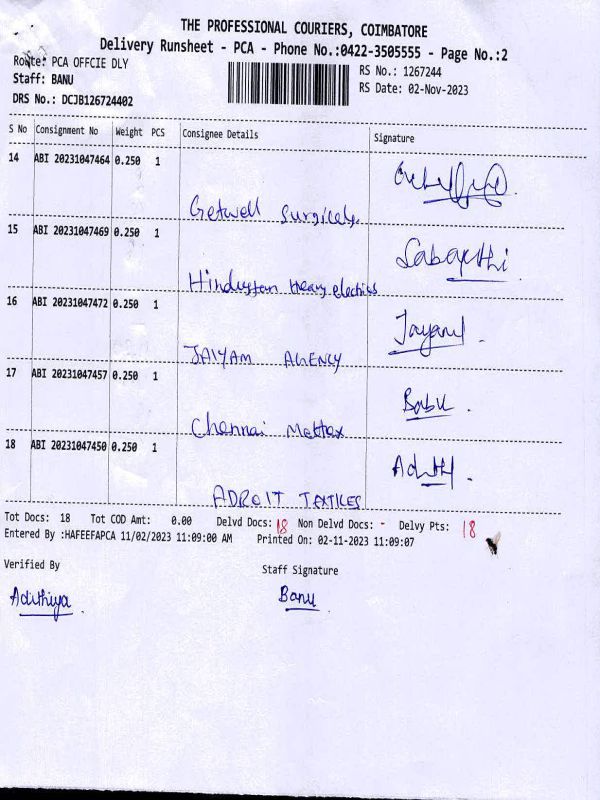 THE PROFESSIONAL COURIERS, COIMBATORE
Delivery Runsheet - PCA - Phone No.:0422-3505555 - Page No.:2
Route: PCA OFFCIE DLY
RS No.: 1267244
Staff: BANU
RS Date: 02-Nov-2023
DRS No.: DCJB126724402
S No Consignment No Weight PCS Consignee Details Signature
14 ABI 20231047464 0.250 1
Getwell Surgicals.
15 ABI 20231047469 0.250 1 Sabarthi
Hindustan Heavy electrics
16 ABI 20231047472 0.250 1
JAIYAM AGENCY
17 ABI 20231047457 0.250 1 Babu.
Chennai Mettex
18 ABI 20231047450 0.250 1
ADROIT TEXTILES
Tot Docs: 18 Tot COD Amt: 0.00 Delvd Docs: 18 Non Delvd Docs: - Delvy Pts: 18
Entered By :HAFEEFAPCA 11/02/2023 11:09:00 AM Printed On: 02-11-2023 11:09:07
Verified By Staff Signature
Adithiya. Banu.